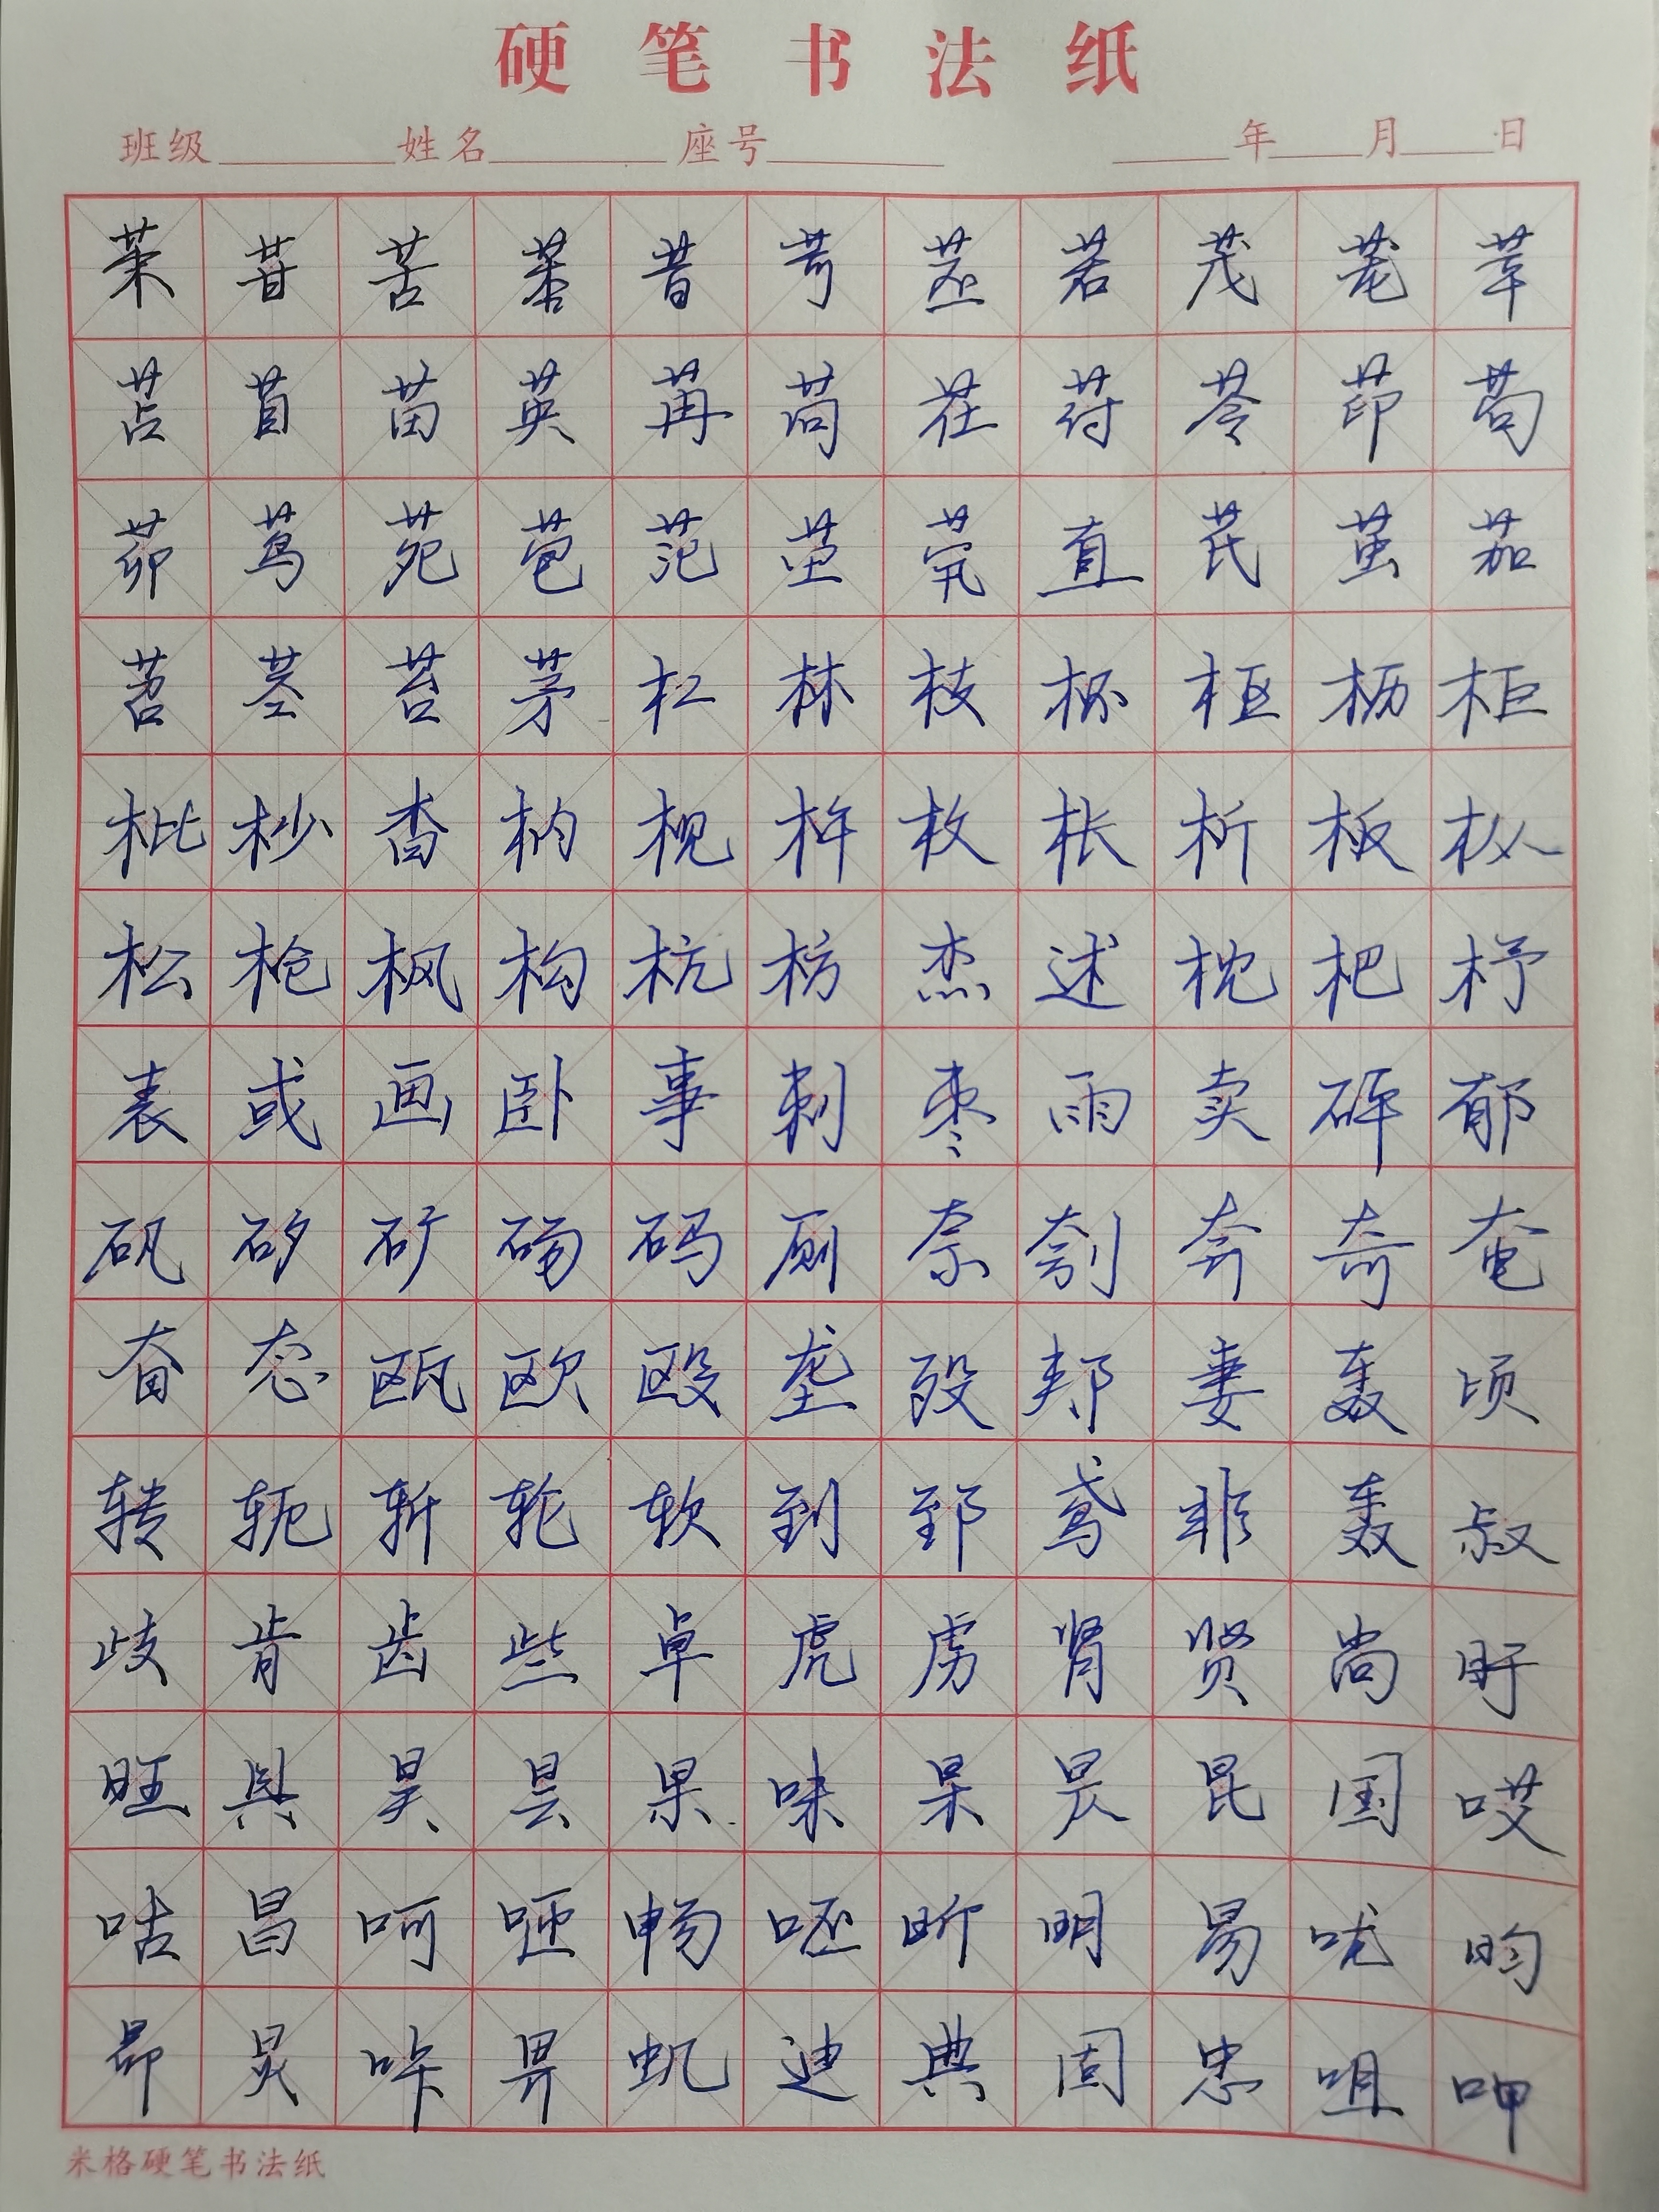 硬笔书法纸
班级 姓名 座号 年 月 日
茉 苷 苦 昔 苛 苤 若 茂 茏 苹
苫 苜 苗 英 苒 苘 茌 苻 苓 茚 苟
茆 茑 苑 苞 范 茔 茕 直 茋 茧 茄
苕 茎 苔 茅 杠 林 枝 杯 枢 枥 柜
枇 杪 杳 枘 枧 杵 枚 枨 析 板 枞
松 枪 枫 构 杭 枋 杰 述 枕 杷 杼
表 或 画 卧 事 刺 枣 雨 卖 砰 郁
矾 矽 矿 砀 码 厕 奈 刳 奔 奇 奄
奋 态 瓯 欧 殴 垄 殁 郏 妻 轰 顷
转 轭 斩 轮 软 到 郅 鸢 非 轰 叔
歧 肯 齿 些 卓 虎 虏 肾 贤 尚 盱
旺 具 昊 昙 果 味 杲 昃 昆 国 哎
咕 昌 呵 咂 畅 呸 昕 明 易 咙 昀
昂 炅 咔 畀 虮 迪 典 固 忠 咀 呷
米格硬笔书法纸